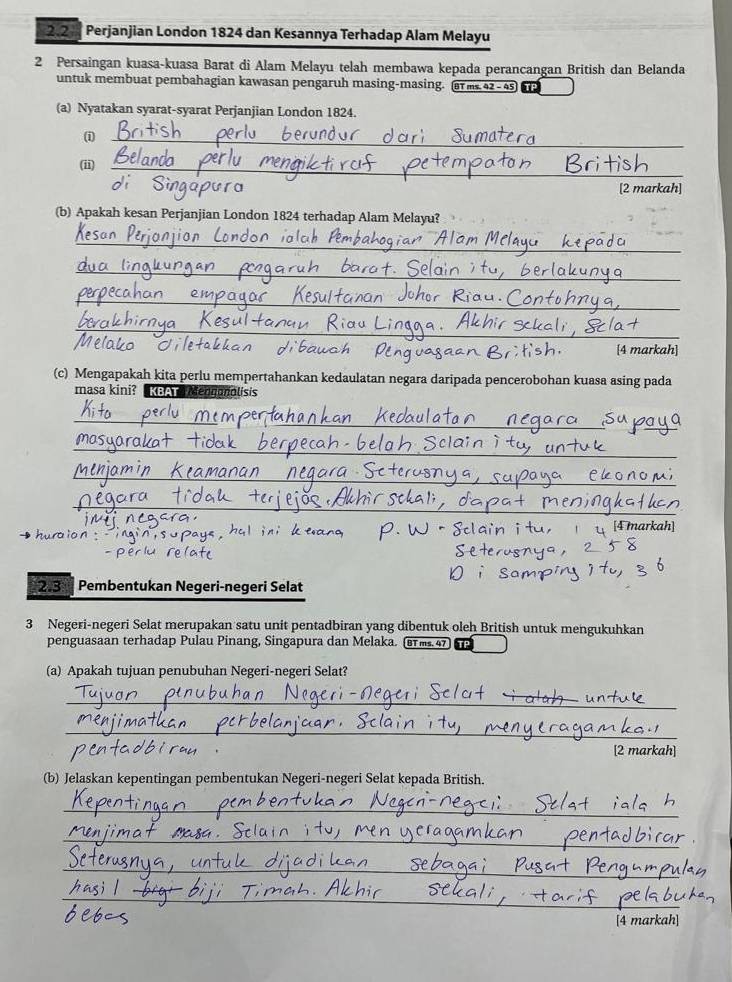 2.2 Perjanjian London 1824 dan Kesannya Terhadap Alam Melayu
2 Persaingan kuasa-kuasa Barat di Alam Melayu telah membawa kepada perancangan British dan Belanda
untuk membuat pembahagian kawasan pengaruh masing-masing. BT ms. 42 – 45 TP
(a) Nyatakan syarat-syarat Perjanjian London 1824.
(i) British perlu berundur dari Sumatera
(ii) Belanda perlu mengiktiraf petempatan British
di Singapura
[2 markah]
(b) Apakah kesan Perjanjian London 1824 terhadap Alam Melayu?
Kesan Perjanjian London ialah Pembahagian Alam Melayu kepada
dua lingkungan pengaruh barat. Selain itu, berlakunya
perpecahan empayar Kesultanan Johor Riau. Contohnya,
berakhirnya Kesultanan Riau Lingga. Akhir sekali, Selat
Melaka diletakkan dibawah Penguasaan British. [4 markah]
(c) Mengapakah kita perlu mempertahankan kedaulatan negara daripada pencerobohan kuasa asing pada
masa kini? KBAT Menganalisis
Kita perlu mempertahankan kedaulatan negara supaya
masyarakat tidak berpecah-belah. Selain itu, untuk
Menjamin Keamanan negara. Seterusnya, supaya ekonomi
negara tidak terjejas. Akhir sekali, dapat meningkatkan
imej negara.
[4 markah]
huraian : - ingin, supaya, hal ini kerana P.W - Selain itu, 1 4
- perlu relate Seterusnya, 2 5 8
Di samping itu, 3 6
2.3 Pembentukan Negeri-negeri Selat
3 Negeri-negeri Selat merupakan satu unit pentadbiran yang dibentuk oleh British untuk mengukuhkan
penguasaan terhadap Pulau Pinang, Singapura dan Melaka. BT ms. 47 TP
(a) Apakah tujuan penubuhan Negeri-negeri Selat?
Tujuan penubuhan Negeri-negeri Selat ialah untuk
menjimatkan perbelanjaan. Selain itu, menyeragamkan
pentadbiran.
[2 markah]
(b) Jelaskan kepentingan pembentukan Negeri-negeri Selat kepada British.
Kepentingan pembentukan Negeri-negeri Selat ialah
menjimat masa. Selain itu, menyeragamkan pentadbiran.
Seterusnya, untuk dijadikan sebagai Pusat Pengumpulan
hasil biji Timah. Akhir sekali, tarif pelabuhan
bebas
[4 markah]